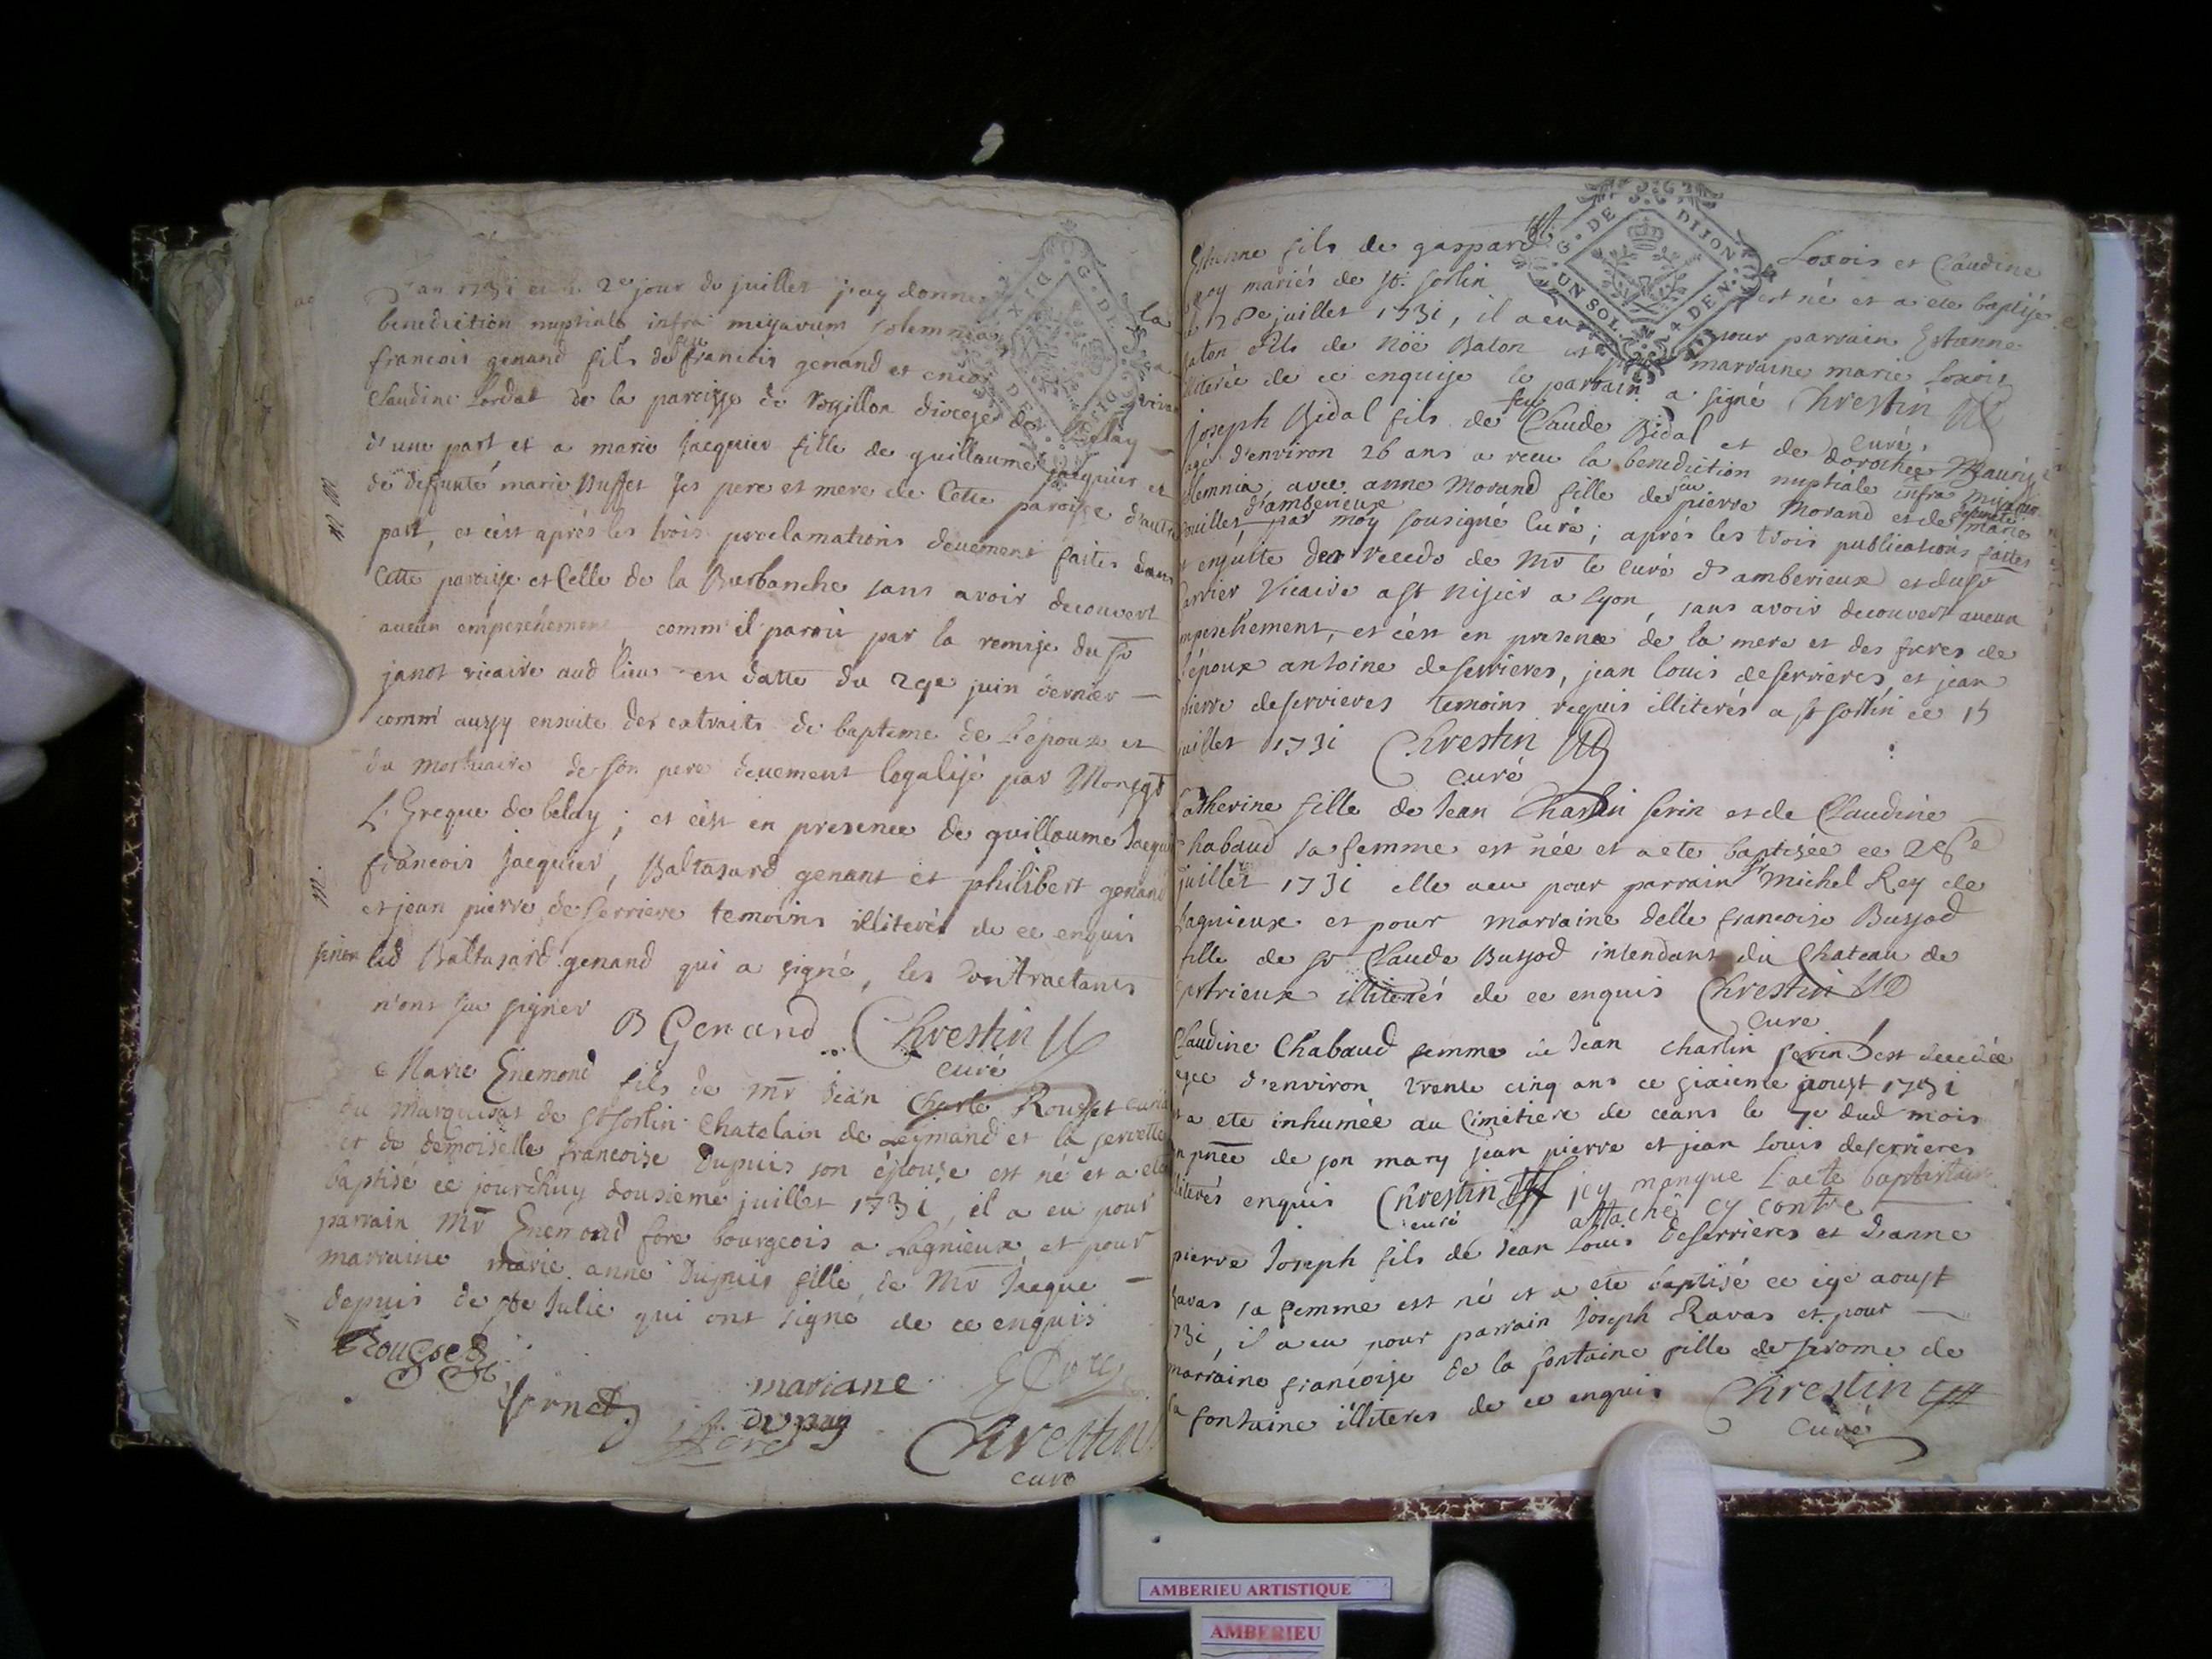 an 1731 et le 2e jour de juillet j'ay donné la
benediction nuptiale infra missarum solemnia a
francois genand fils de feu francois genand et encor vivan
Claudine Lordat de la paroisse de Rossillon diocese de Belay
d'une part et a marie Jacquier fille de guillaume Jacquier et
de deffunte marie Buffet ses pere et mere de Cette paroisse d'autre
part, et c'est aprés les trois proclamations deuement faites dans
Cette paroisse et Celle de la Burbanche sans avoir decouvert
aucun empeschement, comm'il paroit par la remise du Sr
janot vicaire aud lieu en datte du 29e juin dernier
comm' aussy ensuite des extraits de bapteme de l'époux et
du mortuaire de son pere deuement legalisé par Monsgr
L'Eveque de belay; et c'est en presence de guillaume Jacqui
francois Jacquier, Baltasard genant et philibert genand
et jean pierre de serriere temoins illiterés de ce enquis
sinon led Baltasard genand qui a signé, les Contractants
n'ont su signer
B Genand Chrestin
curé
Marie Enemond fils de Mr Jean Charle Rousset curial
du marquisat de St Sorlin Chatelain de Leymand et la servette
et de demoiselle francoise Dupuis son épouse est né et a eté
baptisé ce jourdhuy dousieme juillet 1731, il a eu pour
parrain Mr Enemond fore bourgeois a Lagnieux, et pour
marraine marie anne Dupuis fille de Mr Jacque
depuis de ste Julie qui ont signé de ce enquis
Rousset
mariane
dupuy
Chrestin
curé
Estienne fils de gaspard Loxois et Claudine
mariés de St. Sorlin est né et a eté baptisé
juillet 1731, il a eu pour parrain Estienne
Baton fils de Nöe Baton et pour marraine marie Loxois
illiterée de ce enquise le parrain a signé Chrestin
curé
Joseph Bidal fils de feu Claude Bidal et de dorothée Maurys
agé d'environ 26 ans a receu la benediction nuptiale infra missarum
solemnia avec anne Morand fille de feu pierre Morand et de defunte marie
d'amberieux
par moy sousigné Curé; aprés les trois publications faites
et ensuitte des recedo de Mr le Curé d'amberieux et du Sr
vicaire a St Nisier a Lyon, sans avoir decouvert aucun
empeschement, et c'est en presence de la mere et des freres de
l'époux antoine deserrieres, jean louis deserrieres et jean
pierre deserrieres temoins requis illiterés a St Sorlin ce 15
juillet 1731 Chrestin
curé
Catherine fille de Jean Charlin serin et de Claudine
Chabaud sa femme est née et a eté baptisée ce 26e
juillet 1731 elle a eu pour parrain Sr Michel Rey de
Lagnieux et pour marraine delle francoise Bussod
fille de Sr Claude Bussod intendant du Chateau de
illiterés de ce enquis Chrestin
curé
Claudine Chabaud femme de Jean charlin serin est decedée
agée d'environ trente cinq ans ce sixieme aoust 1731
et a eté inhumée au Cimetiere de ceans le 7e dud mois
en pnce de son mary jean pierre et jean louis deserrieres
illiterés enquis Chrestin icy manque l'acte baptistaire
curé attaché cy contre
pierre Joseph fils de Jean Louis Deserrieres et Jeanne
Ravas sa femme est né et a eté baptisé ce 19e aoust
1731, il a eu pour parrain Joseph Ravas et pour
marraine francoise de la fontaine fille de jerome de
la fontaine illiterés de ce enquis Chrestin
curé
G. DE DIJON
UN SOL. 4 DEN.
AMBERIEU ARTISTIQUE
AMBERIEU